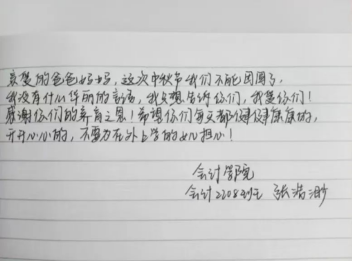 亲爱的爸爸妈妈，这次中秋节我们不能团圆了，
我没有什么华丽的辞语，我只想告诉你们，我爱你们！
感谢你们的养育之恩！希望你们每天都健健康康的，
开开心心的，不要为在外上学的女儿担心！
会计学院
会计2208班 张浩渺